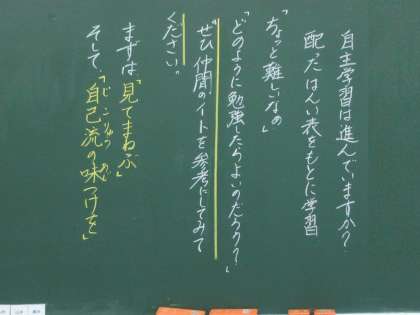 自主学習は進んでいますか？
配っだはんい表をもとに学習
「ちょっと難しいなぁ」
「どのように勉強したらよいのだろう？」
ぜひ仲間のノートを参考にしてみて
ください。
まずは「見てまねぶ」
そして、「自己流の味つけを」
じこりゅう あじ